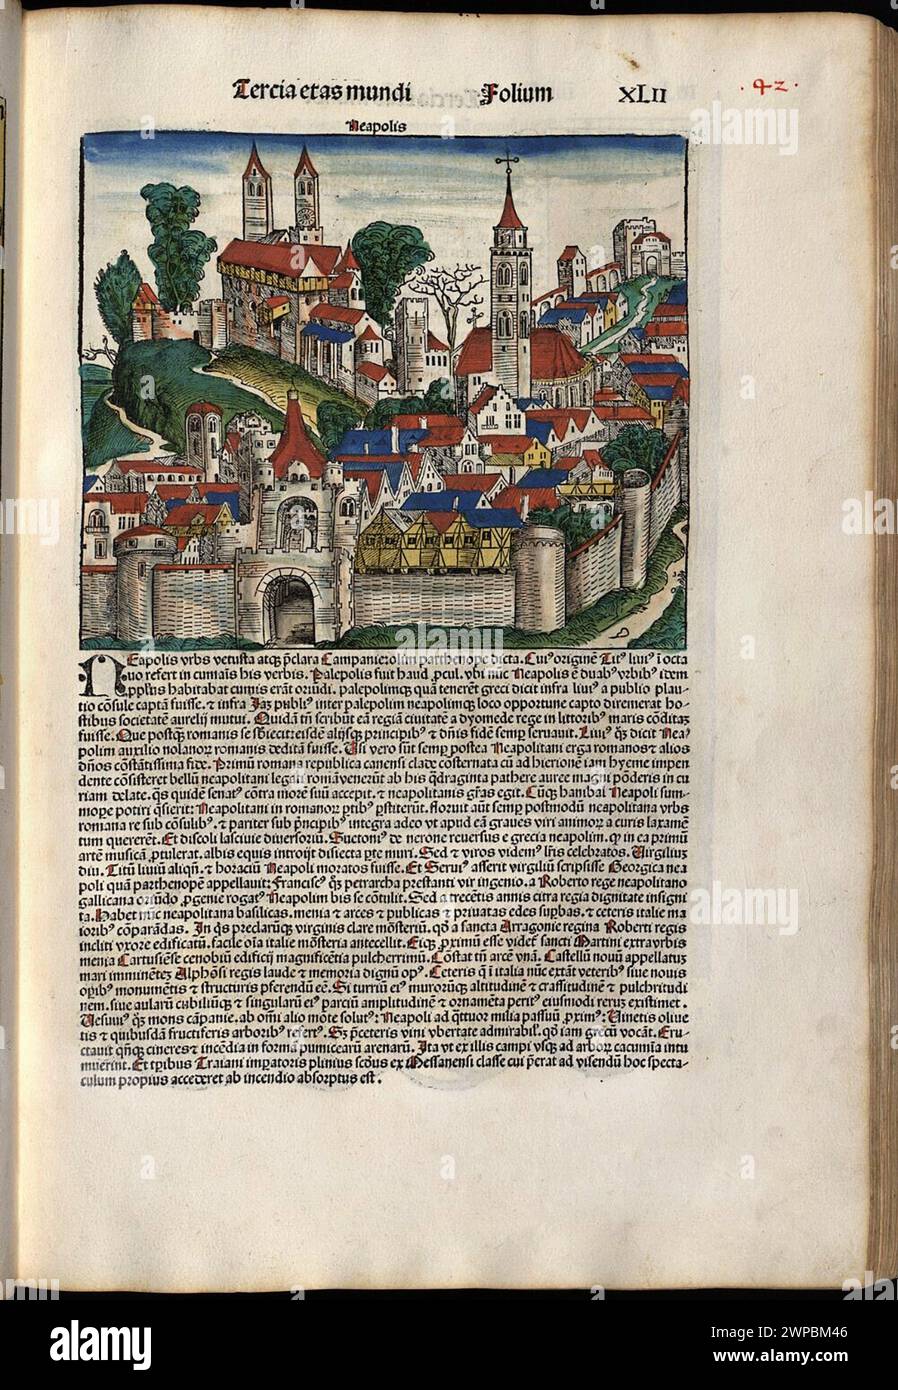 Tercia etas mundi Folium XLII
· 42 ·
Neapolis
NEapolis vrbs vetusta atqꝫ p̄clara Campanie: olim parthenope dicta. Cuiꝰ originē Titꝰ liuiꝰ ī octa
uo refert in cumaīs his verbis. Palepolis fuit haud ꝓcul. vbi nūc Neapolis ē duabꝰ vrbibꝰ idem
ppl̄us habitabat cumis erāt oriūdi. palepolimqꝫ quā tenerēt greci dicit infra liuiꝰ a publio plau
tio cōsule captā fuisse. ⁊ infra
inter palepolim neapolimqꝫ loco opportune capto diremerat ho
stibus societatē aurelij mutui. Quidā tn̄ scribūt eā regiā ciuitatē a dyomede rege in littoribꝰ maris cōditaꝫ
fuisse. Que postqꝫ romanis se sb̄iecit: eisdē alijsqꝫ principibꝰ ⁊ dn̄is fidē semp̄ seruauit. Liuiꝰ qꝫ dicit Nea
polim auxilio nolanoꝝ romanis dedita fuisse. Usi vero sūt semp̄ postea Neapolitani erga romanos ⁊ alios
dn̄os cōstātissima fide. Primū romana republica canensi clade cōsternata cū ad hierionē iam hyeme impen
dente cōsisteret bellū neapolitani legati romā venerūt ab his qͣdraginta pathere auree magni pōderis in cu
riam delate. qͣs quidē senatꝰ cōtra morē suū accepit. ⁊ neapolitanis gr̄as egit. Cūqꝫ hanibal Neapoli sum
mope potiri qͥsierit: Neapolitani in romanoꝝ p̄tibꝰ p̄stiterūt. floruit aūt semp̄ postmodū neapolitana vrbs
romana re sub cōsulibꝰ. ⁊ pariter sub pͥncipibꝰ integra adeo vt apud eā graues viri animoꝝ a curis laxamē
tum quererēt. Et discoli lasciuie diuersoriū. Suetoniꝰ de nerone reuersus e grecia neapolim. ꝙ in ea primū
artē musicā ꝓtulerat. albis equis introijt disiecta pte muri. Sed ⁊ viros videmꝰ lr̄is celebratos. Uirgiliuꝫ
diu. Titū liuiū aliqn̄. ⁊ horaciū Neapoli moratos fuisse. Et Seruiꝰ asserit virgiliū scripsisse Georgica nea
poli quā parthenopē appellauit: Franciscꝰ qꝫ petrarcha prestanti vir ingenio. a Roberto rege neapolitano
gallicana oriūdo ꝓgenie rogatꝰ Neapolim bis se cōtulit. Sed a trecētis annis citra regia dignitate insigni
ta. Habet nūc neapolitana basilicas. menia ⁊ arces ⁊ publicas ⁊ priuatas edes sup̄bas. ⁊ ceteris italie ma
ioribꝰ cōparādas. In qͥs preclarūqꝫ virginis clare mōsteriū. qḋ a sancta Arragonie regina Roberti regis
incliti vxore edificatū. facile oīa italie mōsteria antecellit. Eiqꝫ ꝓximū esse videt᷑ sancti Martini extra vrbis
menia Cartusiēse cenobiū edificij magnificētia pulcherrimū. Cōstat tn̄ arcē vnā. Castellū nouū appellatuꝫ
mari imminētez Alphōsi regis laude ⁊ memoria dignū opꝰ. Ceteris q̄ ī italia nūc extāt veteribꝰ siue nouis
opibꝰ monumētis ⁊ structuris p̄ferendū eē. Si turriū ei murorūqꝫ altitudinē ⁊ crassitudinē ⁊ pulchritudi
nem. siue aularū cubiliūqꝫ ⁊ singularū eiꝰ parciū amplitudinē ⁊ ornamēta peritꝰ eiusmodi reruꝫ existimet.
Uesuuiꝰ qꝫ mons cāpanie. ab om̄i alio mōte solutꝰ: Neapoli ad qͣttuor milia passuū ꝓximꝰ: Uinetis oliue
tis ⁊ quibusdā fructiferis arboribꝰ refertꝰ. Sꝫ p̄ceteris vini vbertate admirabilꝰ. qḋ iam grecū vocāt. Eru
ctauit qn̄qꝫ cineres ⁊ incēdia in forma pumicearū arenarū. Ita vt ex illis campi vsqꝫ ad arboꝝ cacumīa intu
muerint. Et tp̄ibus Traiani imp̄atoris plinius scd̄us ex Messanensi classe cui p̄erat ad visendū hoc specta-
culum propius accederet ab incendio absorptus est.
alamy
www.alamy.com
Image ID: 2WPBM46